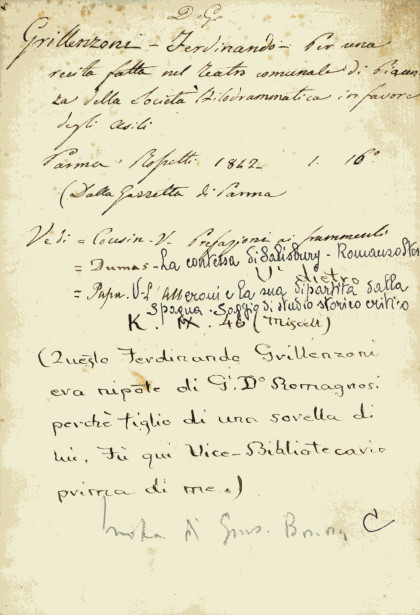 Grillenzoni - Ferdinando - Per una
recita fatta nel Teatro comunale di Piacen-
za della Società Filodrammatica in favore
degli Asili
Parma, Rossetti 1842. 1. 16°
(Dalla Gazzetta di Parma
Vedi = Cousin - V - Prefazioni ai frammenti
= Dumas - La contessa di Salisbury - Romanzo Stor
Vi dietro
= Papa. V - L'Alberoni e la sua dipartita dalla
Spagna. Saggio di studio storico critico
K. IX. 46 (Miscell)
(Questo Ferdinando Grillenzoni
era nipote di G. Do Romagnosi
perchè figlio di una sorella di
lui. Fù qui Vice-Bibliotecario
prima di me.)
nota di Gius.
C